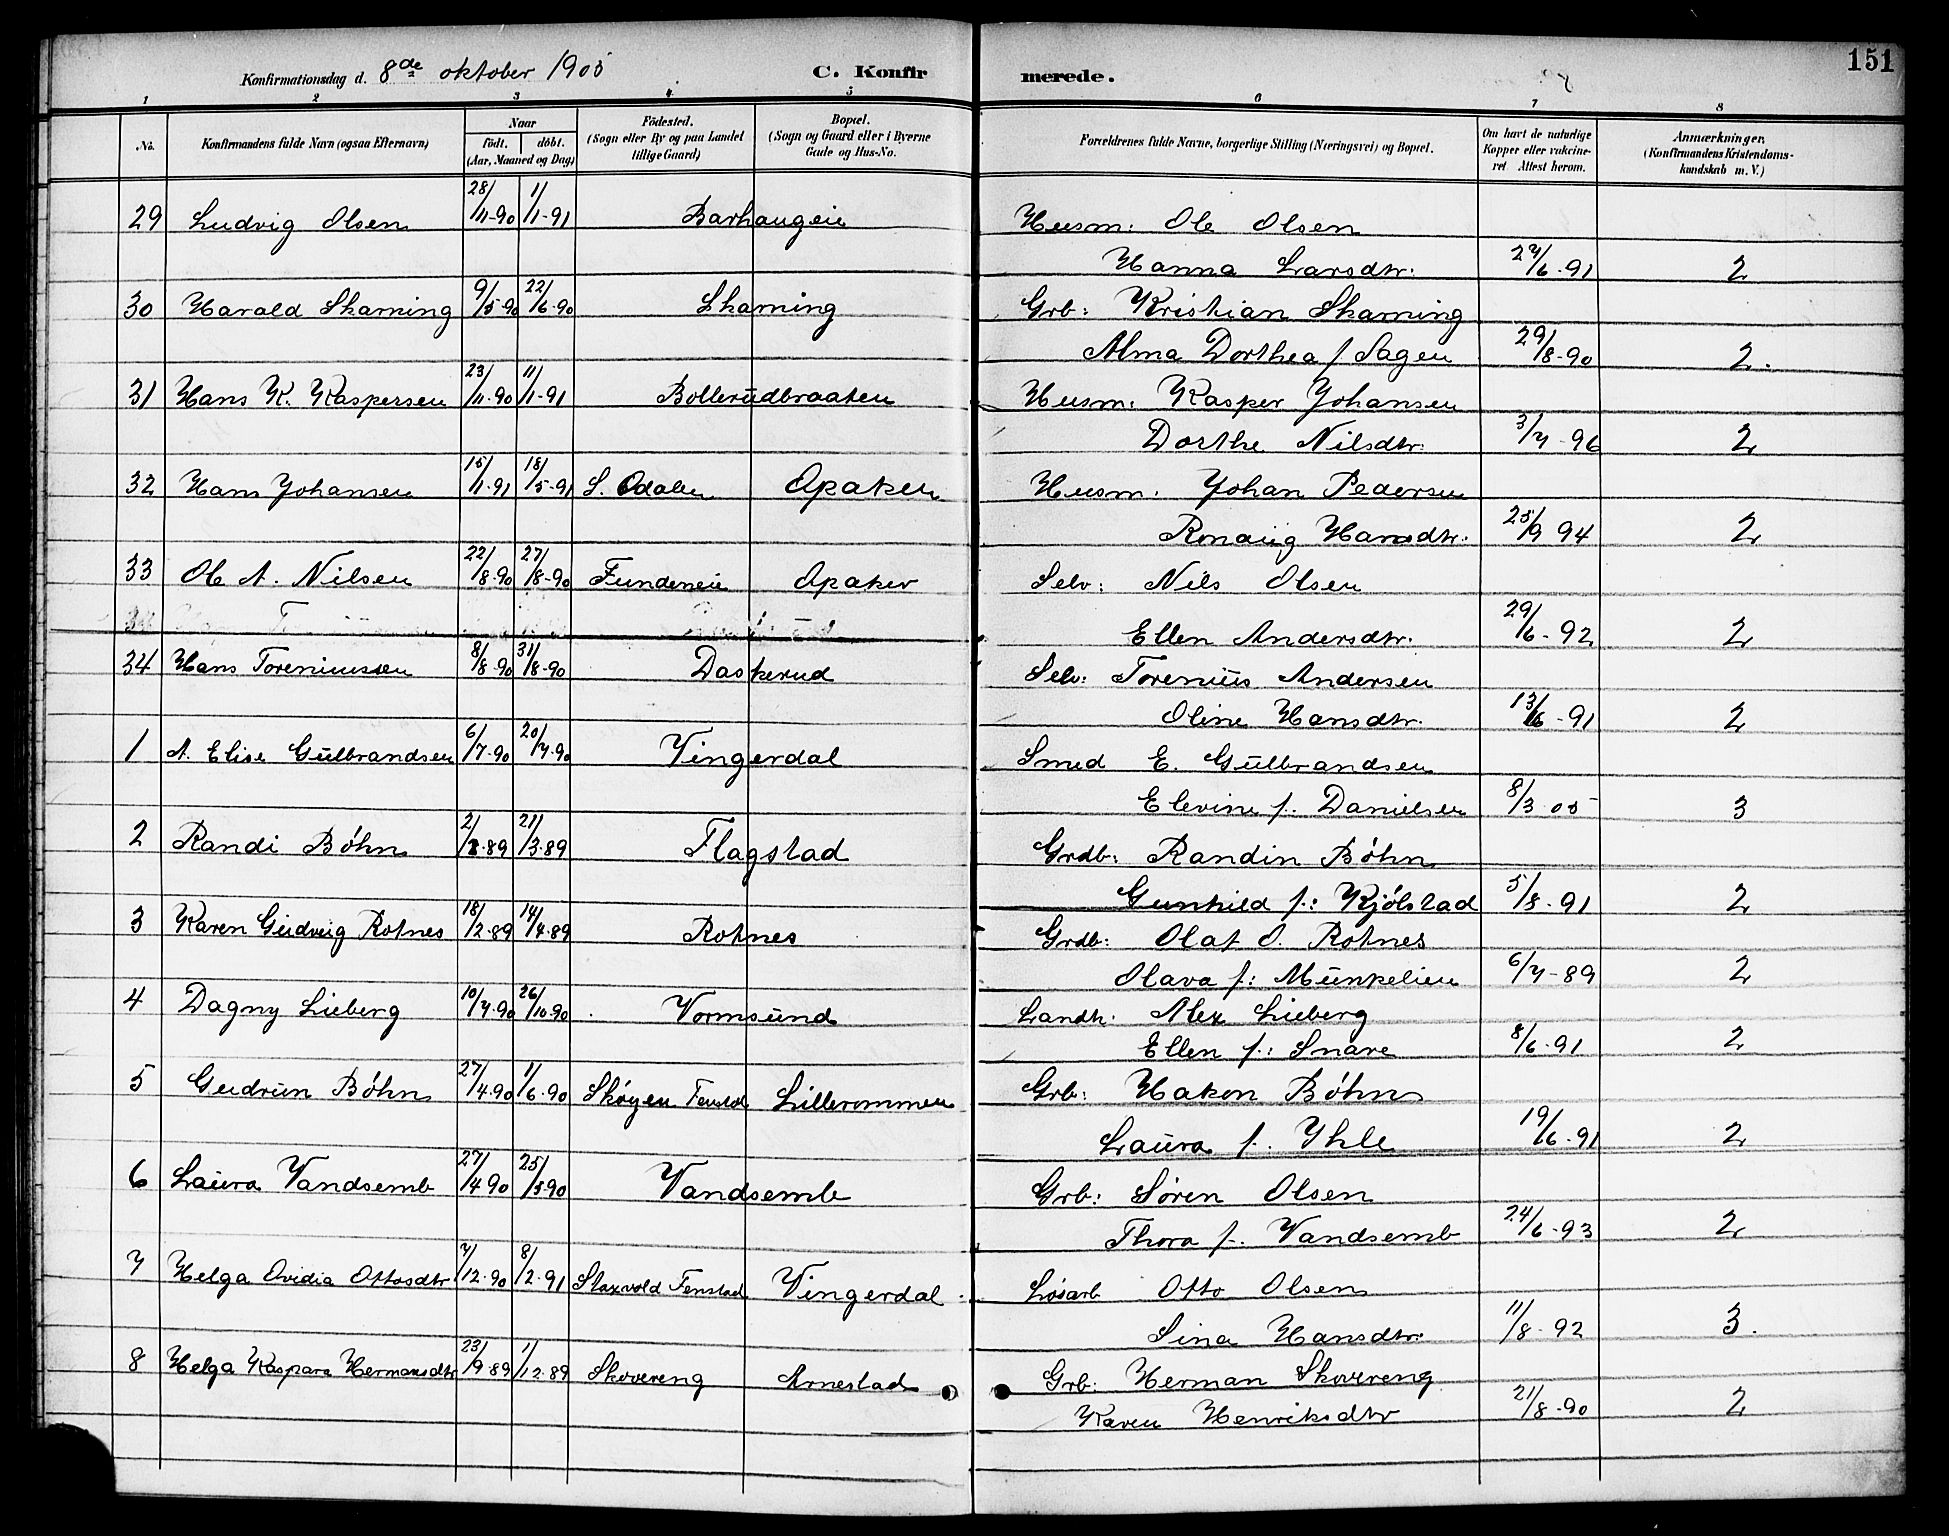 151
Konfirmationsdag d. 8de oktober 1905 C. Konfirmerede.
1 2 3 4 5 6 7 8
No. Konfirmandens fulde Navn (ogsaa Efternavn) Naar födt. döbt. (Aar, Maaned og Dag) Födested. (Sogn eller By og paa Landet tillige Gaard) Bopæl. (Sogn og Gaard eller i Byerne Gade og Hus-No. Forældrenes fulde Navne, borgerlige Stilling (Næringsvei) og Bopæl. Om havt de naturlige Kopper eller vakcineret. Attest herom. Anmærkninger. (Konfirmandens Kristendomskundskab m. V.)
29 Ludvig Olsen 28/11-90 1/1-91 Barhaugeie Husm: Ole Olsen
Hanna Larsdtr. 27/6-91 2
30 Harald Skarning 9/5-90 22/6-90 Skarning Grb: Kristian Skarning
Alma Dorthea f. Sagen 29/8-90 2.
31 Hans K. Kaspersen 23/11-90 11/1-91 Bollerudbraaten Husm: Kasper Johansen
Dorthe Nilsdtr. 3/7-96 2
32 Hans Johansen 15/1-91 18/5-91 S. Odalen Opaker Husm. Johan Pedersen
Ronaug Hansdtr. 25/9 94 2
33 Ole A. Nilsen 22/8-90 27/8-90 Fundeneie Opaker Selv: Nils Olsen
Ellen Andersdtr. 29/6-92 2
34 Hans Toreniussen 8/8-90 31/8-90 Daskerud Selv: Torenius Andersen
Oline Hansdtr. 13/6-91 2
1 A. Elise Gulbrandsen 6/7-90 20/7-90 Vingerdal Smed E. Gulbrandsen
Elevine f. Danielsen 8/3 05 3
2 Randi Bøhn 2/1-89 21/3-89 Flagstad Grdb: Randin Bøhn
Gunhild f: Kjølstad 5/8-91 2
3 Karen Gudveig Rotnes 18/2-89 14/4-89 Rotnes Grdb: Olaf O. Rotnes
Olava f: Munkelien 6/7-89 2
4 Dagny Lieberg 10/7-90 26/10-90 Vormsund Landh. Alex Lieberg
Ellen f: Snare 8/6-91 2
5 Gudrun Bøhn 27/4-90 1/6-90 Skøyen Fenstd Lillerommen Grb: Hakon Bøhn
Laura f. Ihle 19/6-91 2
6 Laura Vandsemb 27/4 90 25/5 90 Vandsemb Grb: Søren Olsen
Thora f. Vandsemb 24/6-93 2
7 Helga Ovidia Ottosdtr 7/12-90 8/2-91 Slaxvold Fenstad Vingerdal Løsarb Otto Olsen
Sina Hansdtr. 11/8-92 3.
8 Helga Kaspara Hermansdtr 23/9 89 1/12-89 Skovereng Arnestad Grb: Herman Skovereng
Karen Henriksdtr 21/8-90 2